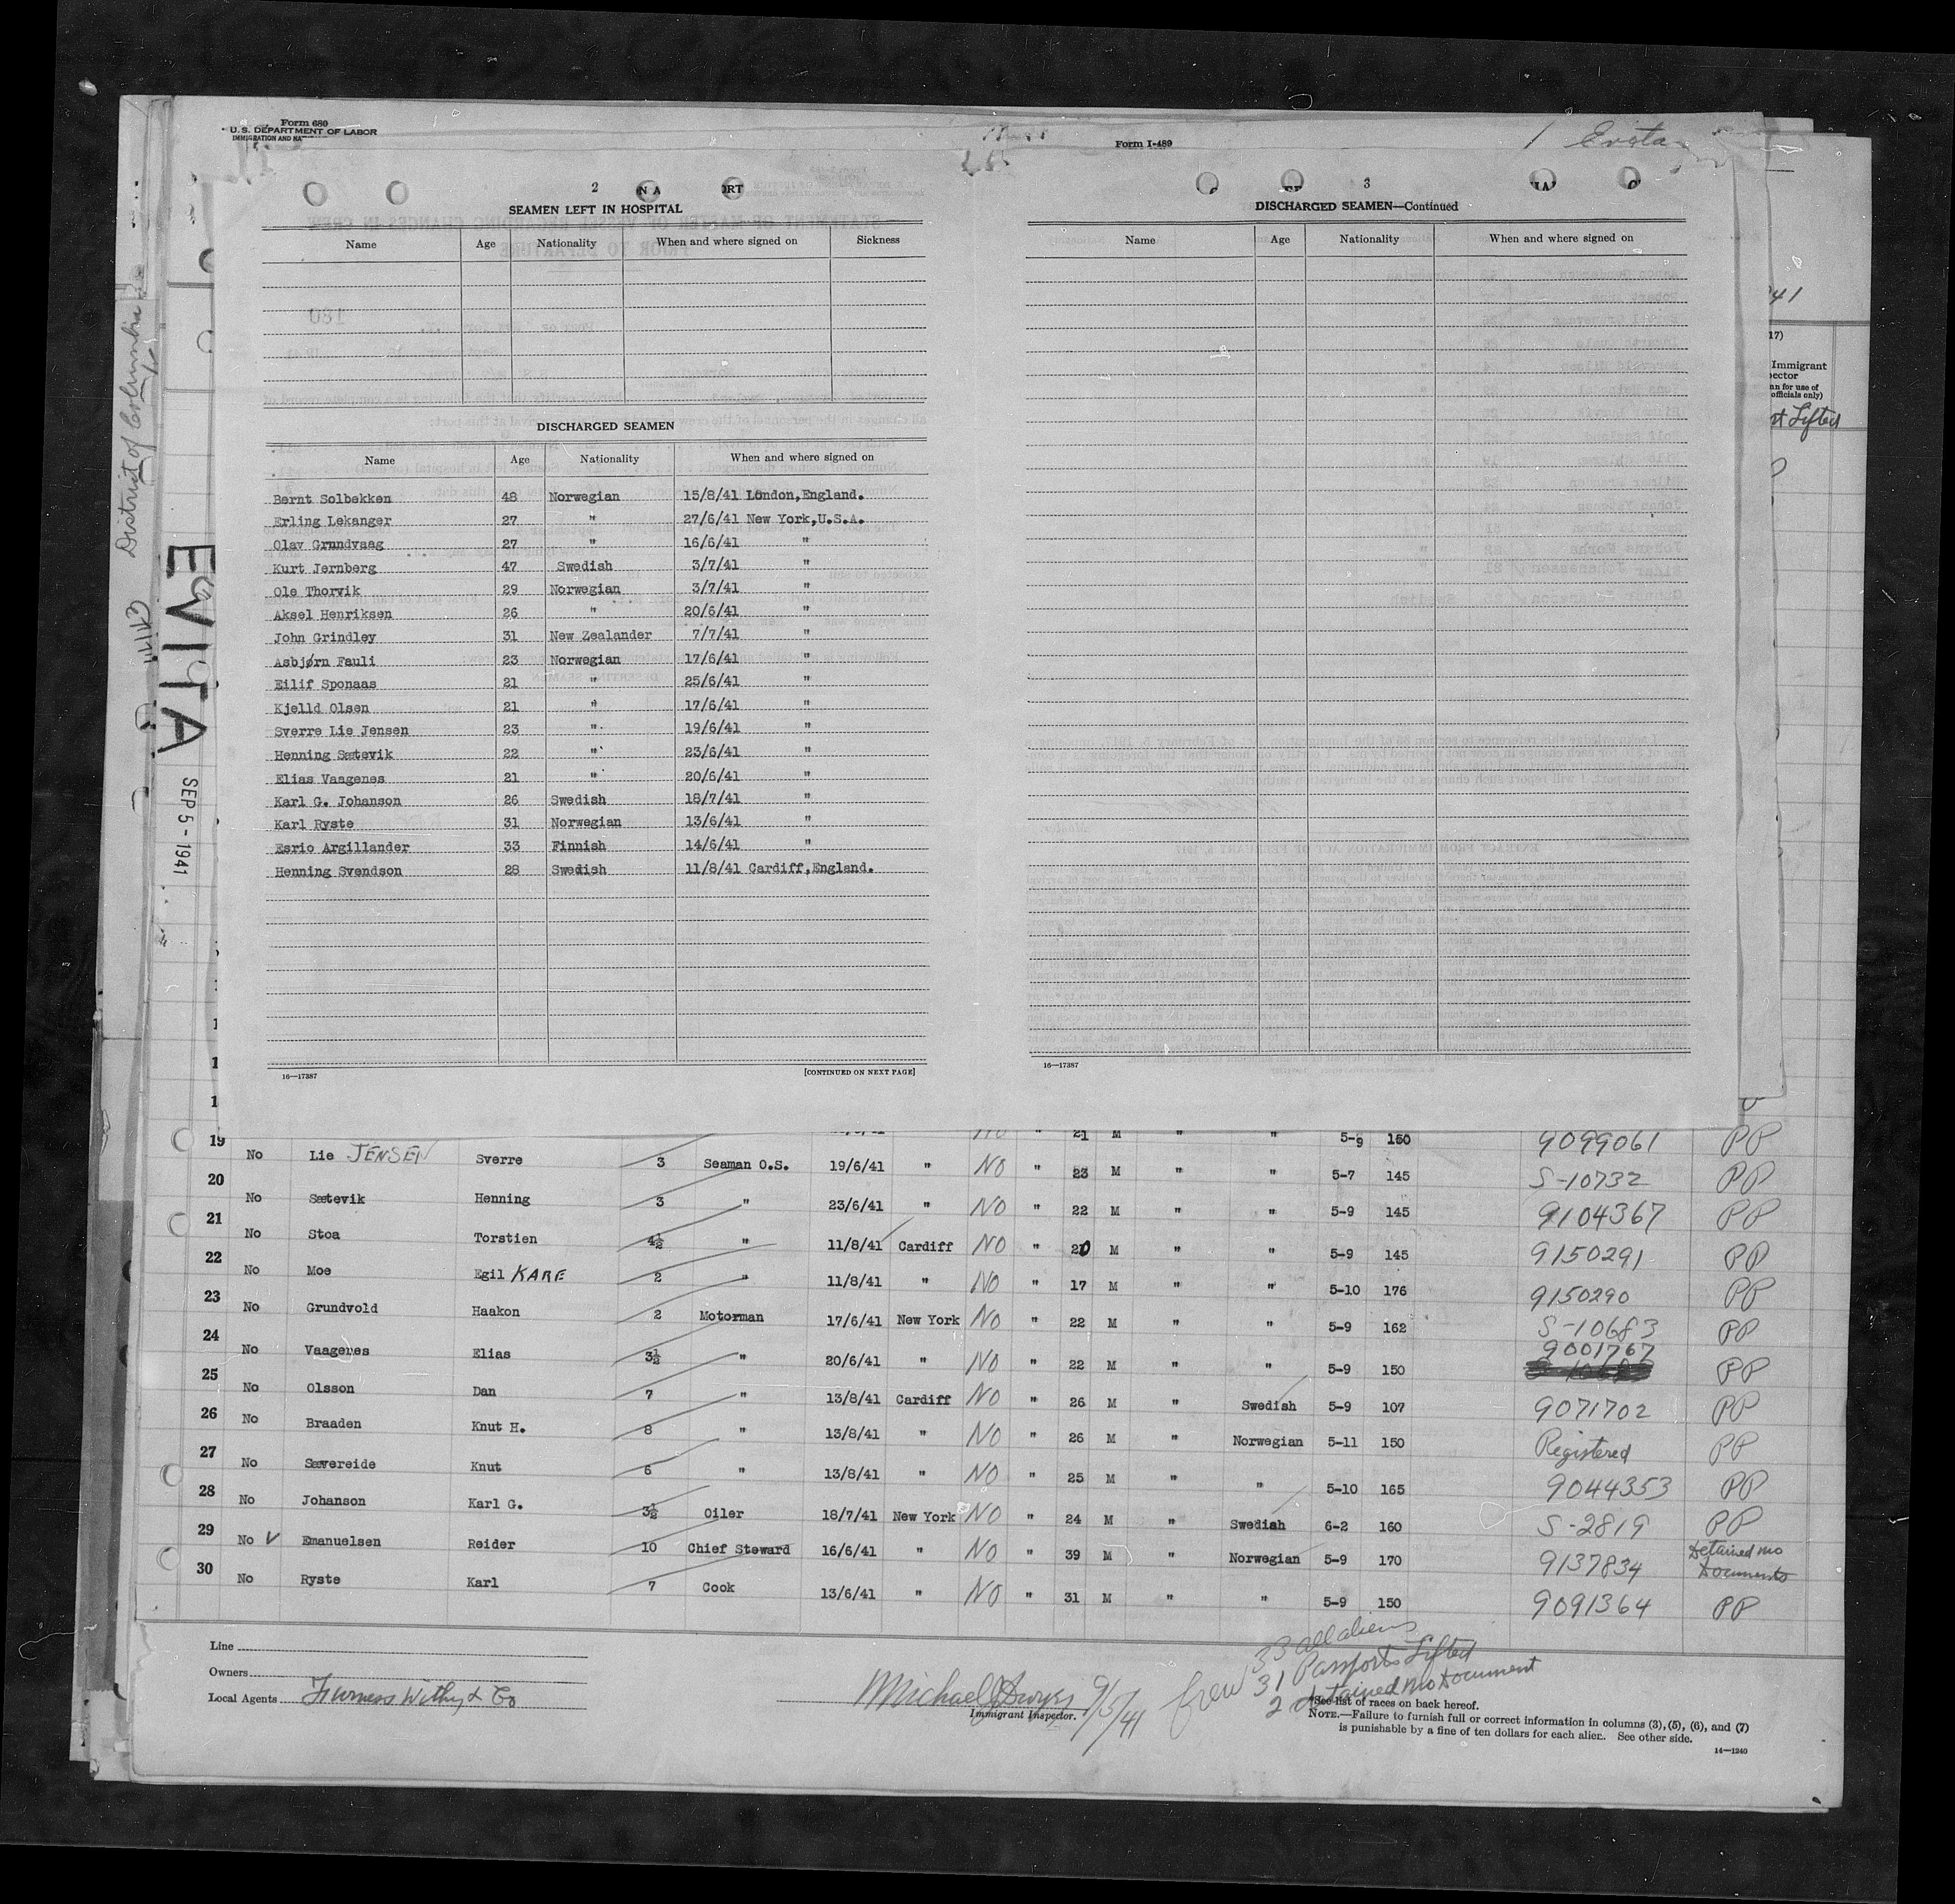 Form 680
U.S. DEPARTMENT OF LABOR
Form I-489
District of Columbia
EVITA
SEP 5 - 1941
2
SEAMEN LEFT IN HOSPITAL
Name Age Nationality When and where signed on Sickness
DISCHARGED SEAMEN
Name Age Nationality When and where signed on
Bernt Solbekken 48 Norwegian 15/8/41 London,England.
Erling Lekanger 27 " 27/6/41 New York,U.S.A.
Olav Grundvaag 27 " 16/6/41 "
Kurt Jernberg 47 Swedish 3/7/41 "
Ole Thorvik 29 Norwegian 3/7/41 "
Aksel Henriksen 26 " 20/6/41 "
John Grindley 31 New Zealander 7/7/41 "
Asbjørn Fauli 23 Norwegian 17/6/41 "
Eilif Sponaas 21 " 25/6/41 "
Kjelld Olsen 21 " 17/6/41 "
Sverre Lie Jensen 23 " 19/6/41 "
Henning Sætevik 22 " 23/6/41 "
Elias Vaagenes 21 " 20/6/41 "
Karl G. Johanson 26 Swedish 18/7/41 "
Karl Ryste 31 Norwegian 13/6/41 "
Esrio Argillander 33 Finnish 14/6/41 "
Henning Svendson 28 Swedish 11/8/41 Cardiff,England.
16—17387 [CONTINUED ON NEXT PAGE]
3
DISCHARGED SEAMEN—Continued
Name Age Nationality When and where signed on
16—17387
41
17)
Immigrant
officials only)
Lifted
21 M " " 5-9 150 9099061 PP
19 No Lie JENSEN Sverre 3 Seaman O.S. 19/6/41 " NO " 23 M " " 5-7 145 S-10732 PP
20 No Sætevik Henning 3 " 23/6/41 " NO " 22 M " " 5-9 145 9104367 PP
21 No Stoa Torstien 4½ " 11/8/41 Cardiff NO " 20 M " " 5-9 145 9150291 PP
22 No Moe Egil KARE 2 " 11/8/41 " NO " 17 M " " 5-10 176 9150290 PP
23 No Grundvold Haakon 2 Motorman 17/6/41 New York NO " 22 M " " 5-9 162 S-10683 PP
24 No Vaagenes Elias 3½ " 20/6/41 " NO " 22 M " " 5-9 150 9001767 PP
25 No Olsson Dan 7 " 13/8/41 Cardiff NO " 26 M " Swedish 5-9 107 9071702 PP
26 No Braaden Knut H. 8 " 13/8/41 " NO " 26 M " Norwegian 5-11 150 Registered PP
27 No Sævereide Knut 6 " 13/8/41 " NO " 25 M " " 5-10 165 9044353 PP
28 No Johanson Karl G. 3½ Oiler 18/7/41 New York NO " 24 M " Swedish 6-2 160 S-2819 PP
29 No Emanuelsen Reider 10 Chief Steward 16/6/41 " NO " 39 M " Norwegian 5-9 170 9137834 Detained no Documents
30 No Ryste Karl 7 Cook 13/6/41 " NO " 31 M " " 5-9 150 9091364 PP
Line
Owners
Local Agents Furness Withy & Co
Michael J Dwyer 9/5/41
Immigrant Inspector.
Crew 33 all aliens
31 Passports Lifted
2 detained no Document
See list of races on back hereof.
NOTE.—Failure to furnish full or correct information in columns (3), (5), (6), and (7)
is punishable by a fine of ten dollars for each alien. See other side.
14—1240